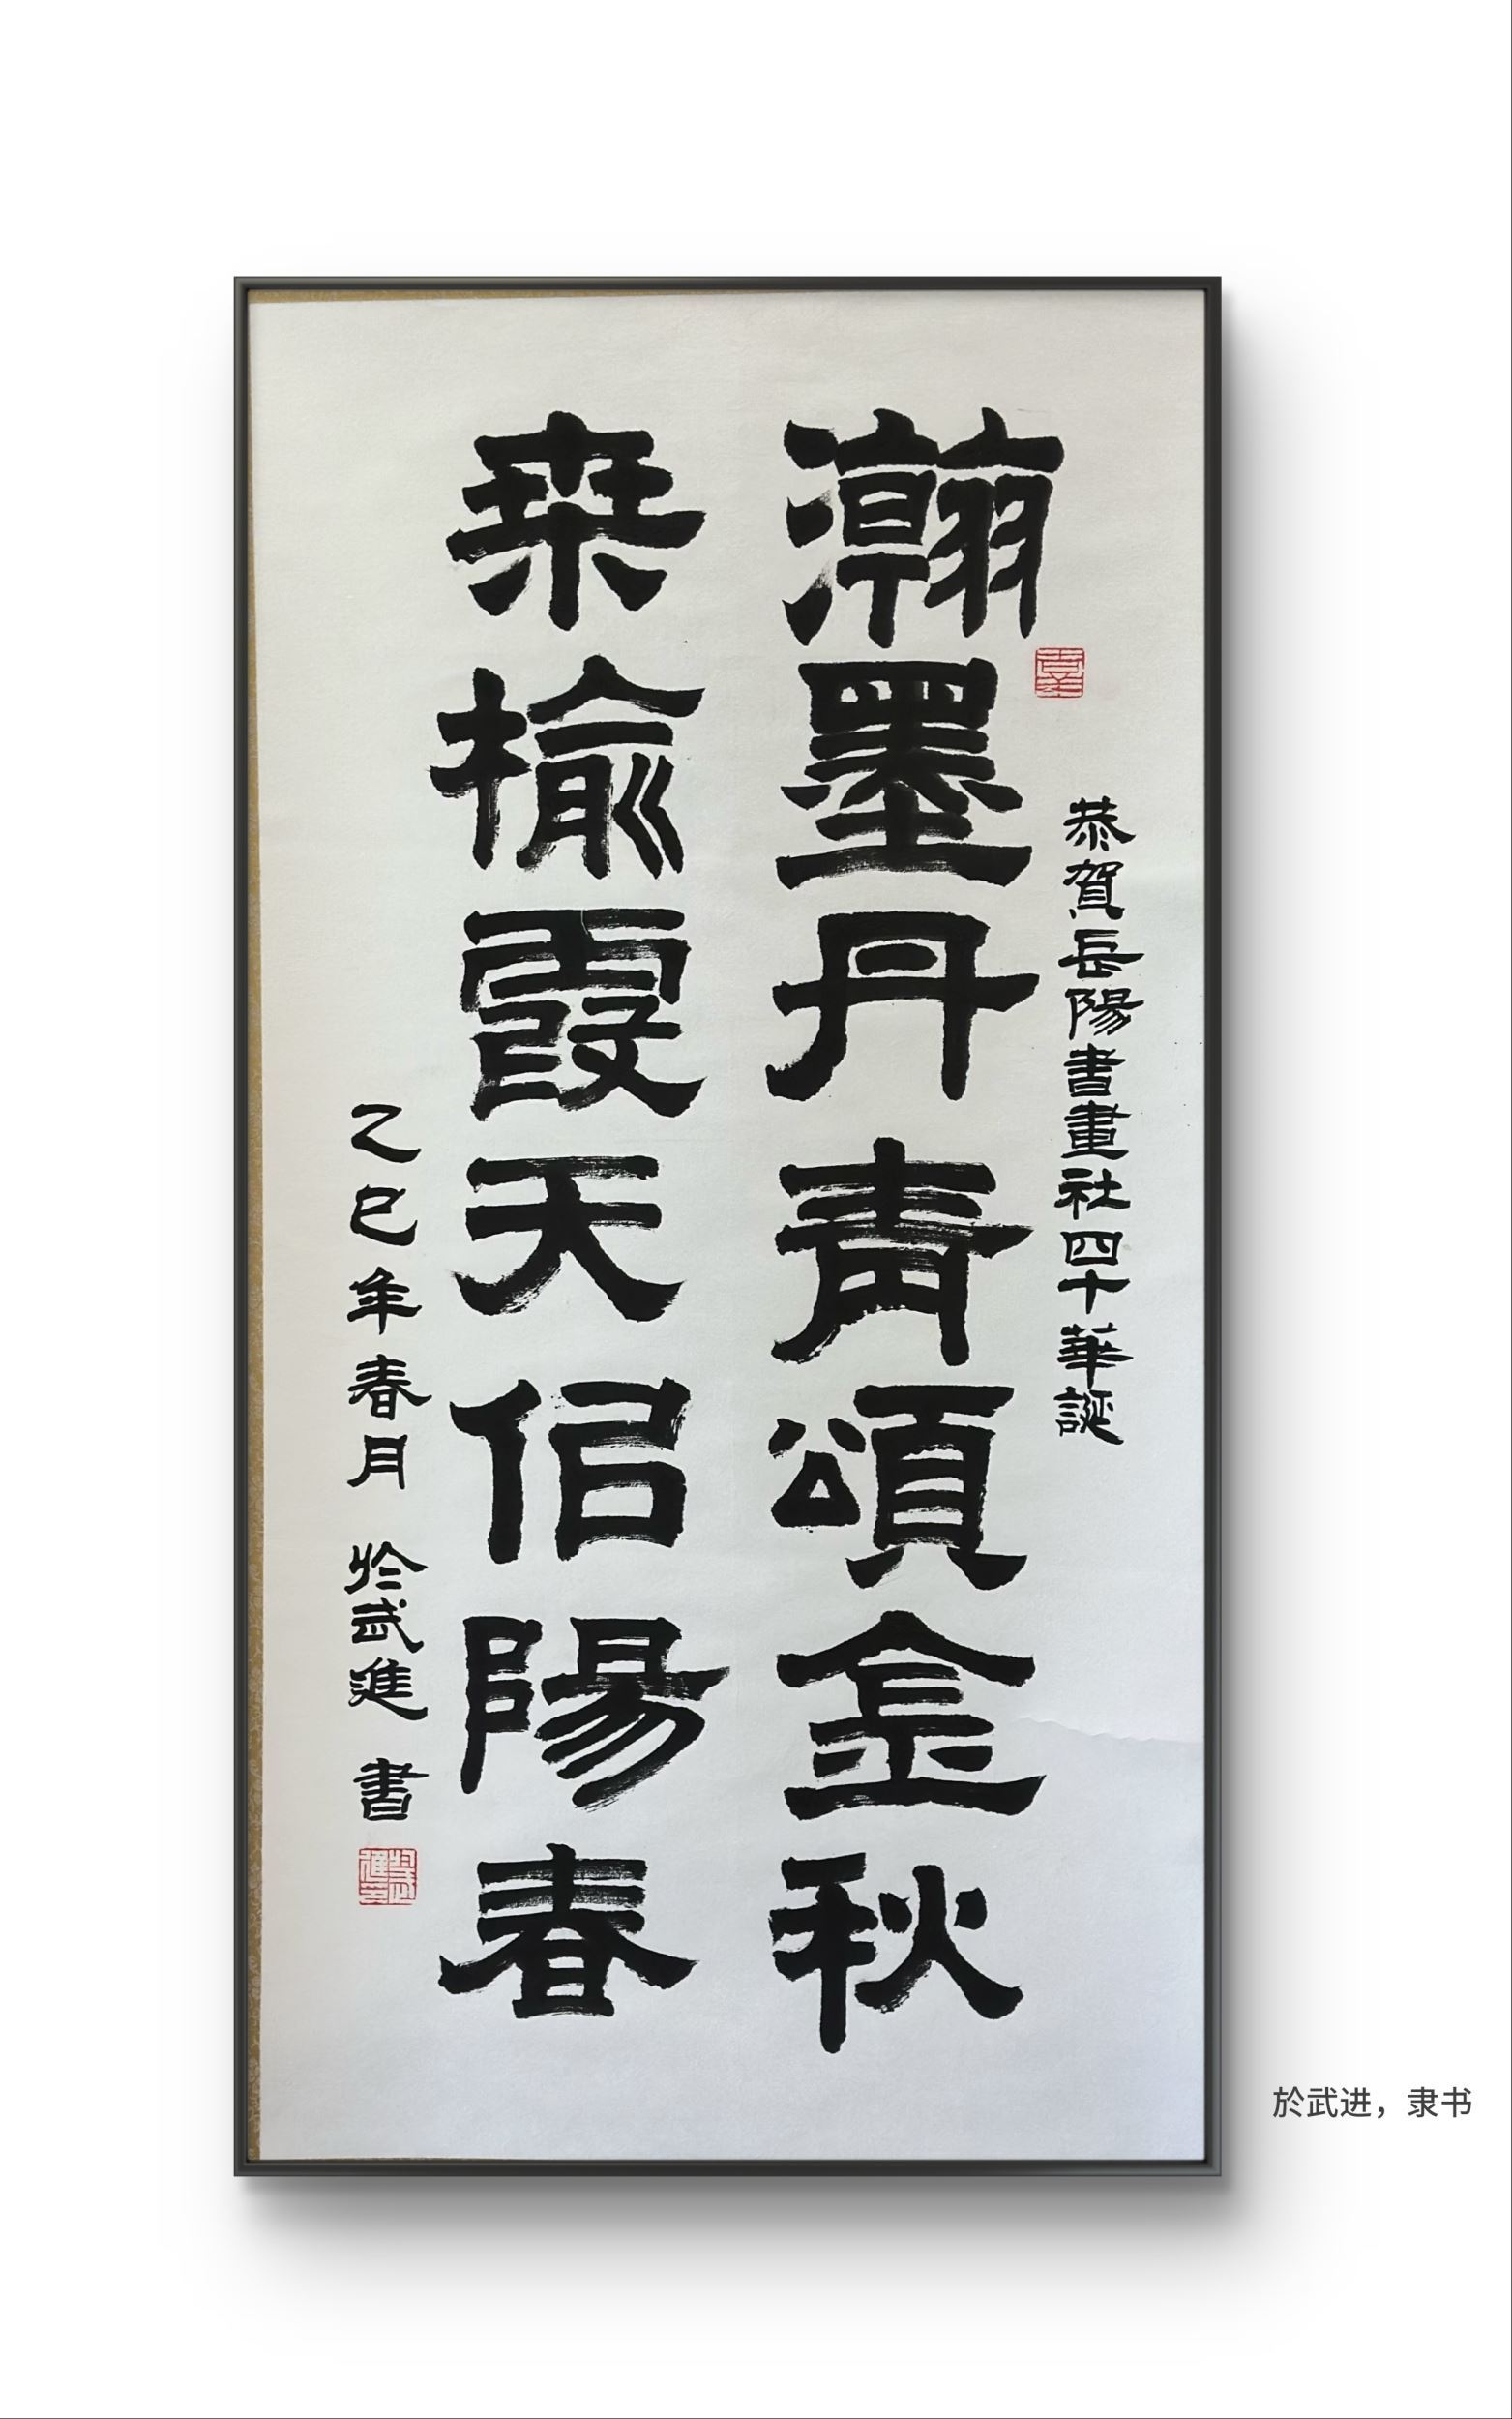 恭賀岳陽書畫社四十華誕
瀚墨丹青頌金秋
桑榆霞天侣陽春
乙巳年春月 於武進 書
於武进，隶书